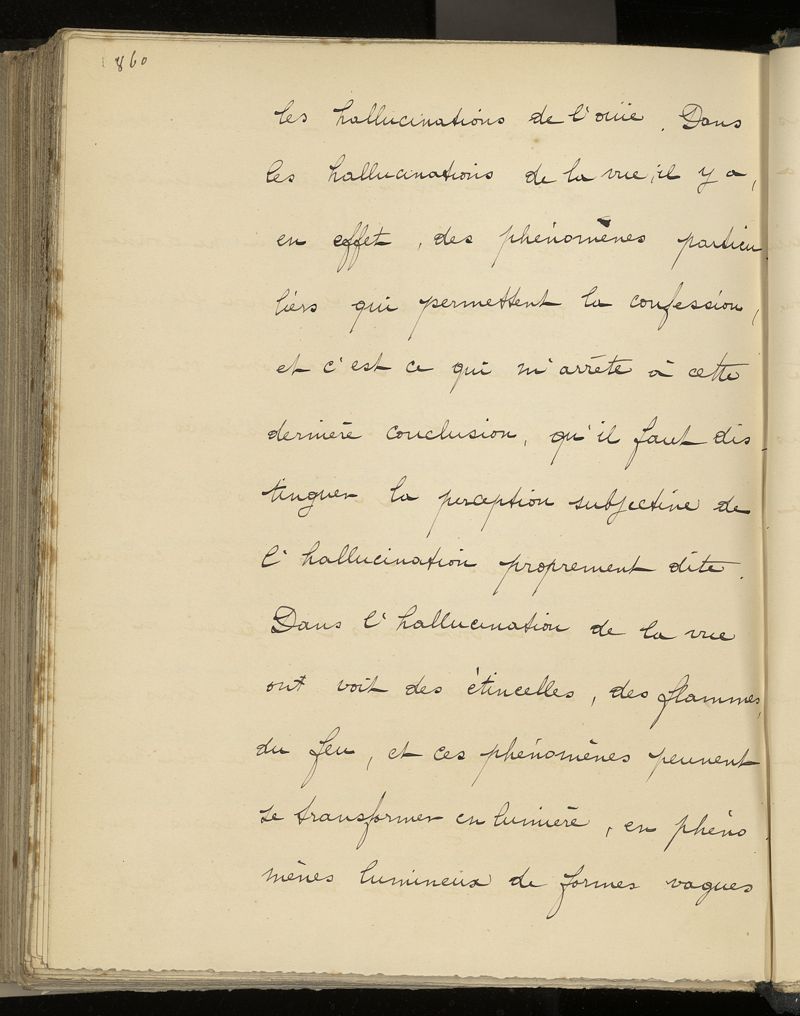 860
les hallucinations de l'ouïe. Dans
les hallucinations de la vue, il y a,
en effet, des phénomènes particu
liers qui permettent la confession,
et c'est ce qui m'arrête à cette
dernière conclusion, qu'il faut dis-
tinguer la perception subjective de
l'hallucination proprement dite.
Dans l'hallucination de la vue
ont voit des étincelles, des flammes,
du feu, et ces phénomènes peuvent
se transformer en lumière, en phéno
mènes lumineux de formes vagues